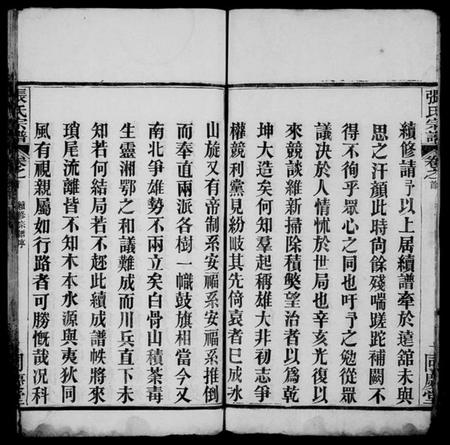 張氏宗譜
卷之首
續修請予以上居續譜牽於遠舘未與
思之汗顏此時尚餘殘喘蹉跎補闕不
得不徇乎眾心之同也吁予之勉從眾
議決於人情怵於世局也辛亥光復以
來競談維新掃除積獘望治者以爲乾
坤大造矣何知羣起稱雄大非初志爭
權競利黨見紛岐其先倚袁者巳成冰
山旋又有帝制系安福系安福系推倒
而奉直兩派各樹一幟鼓旗相當今又
南北爭雄勢不兩立矣白骨山積荼毒
生靈湘鄂之和議難成而川兵直下未
知若何結局若不趂此續成譜帙將來
瑣尾流離皆不知木本水源與夷狄同
風有視親屬如行路者可勝慨哉况科
張氏宗譜
卷之首
續修宗譜序
同慶堂